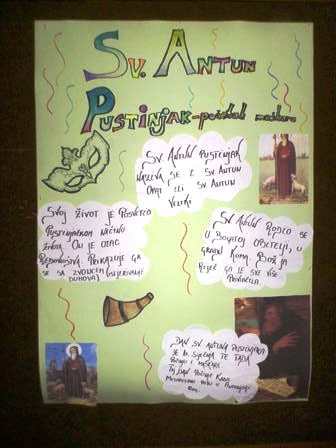 SV. ANTUN
PUSTINJAK-početak maškara
SV. ANTUN PUSTINJAK
NAZIVA SE I SV. ANTUN
OPAT ILI SV. ANTUN
VELIKI
SVOJ ŽIVOT JE POSVETIO
PUSTINJAČKOM NAČINU
ŽIVOTA. ON JE OTAC
REDOVNIŠTVA. PRIKAZUJE GA
SE SA ZVONCEM (ISTJERIVANJE
DUHOVA)
SV. ANTUN RODIO SE
U BOGATOJ OBITELJI, U
GRADU KOMA. BOŽJA
RIJEČ GA JE SVE VIŠE
PRIVLAČILA.
DAN SV. ANTUNA PUSTINJAKA
JE 17. SIJEČNJA TE TADA
POČINJU I MAŠKARE.
TAJ DAN POČINJE